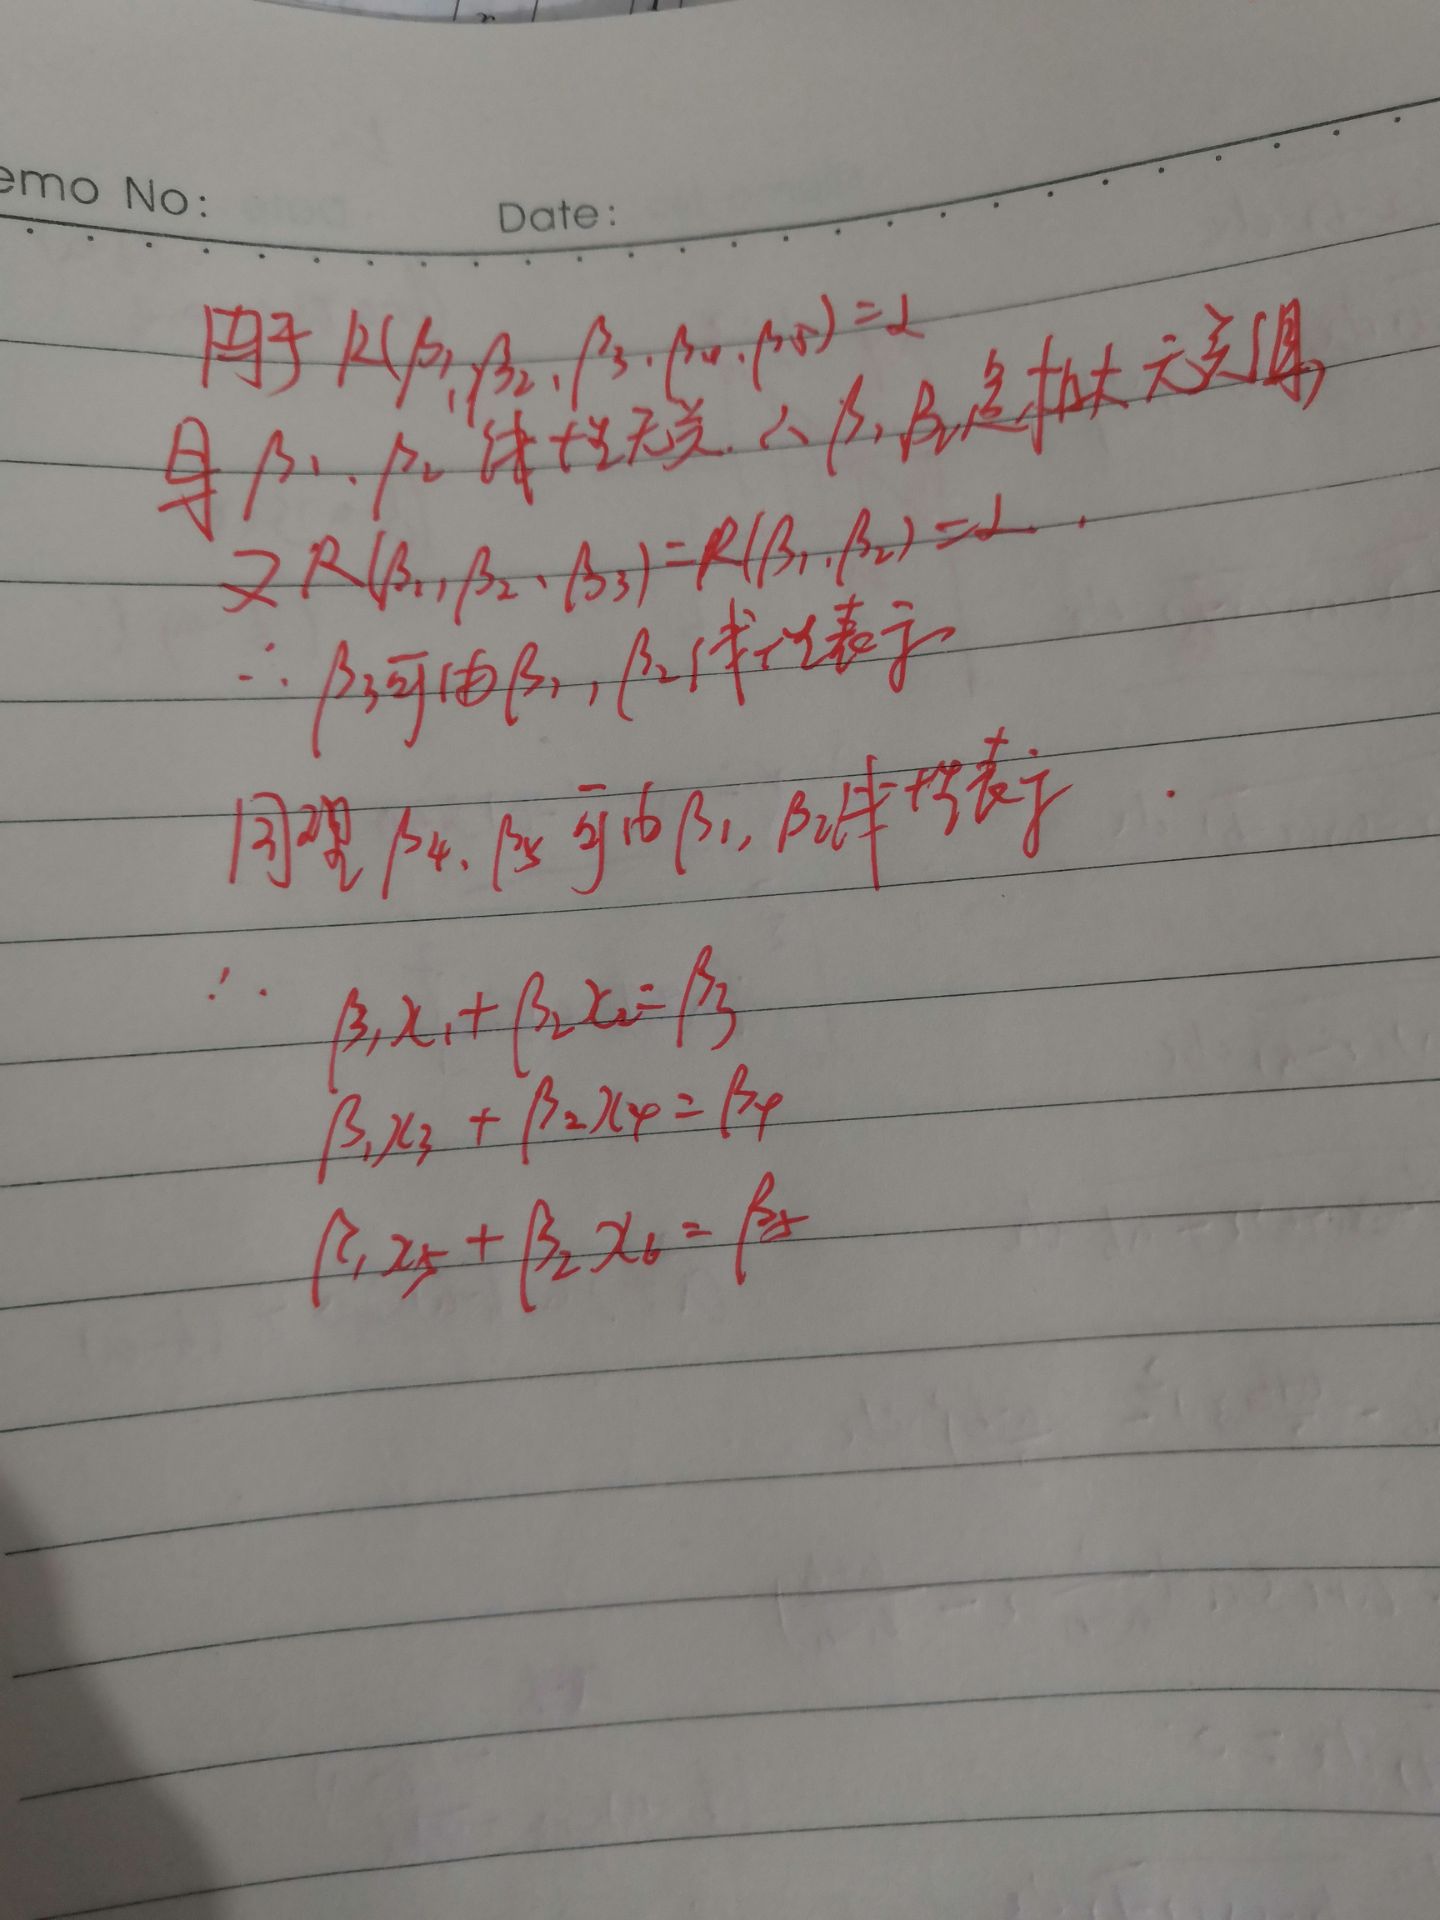 emo No:
Date:
由于 R(β₁,β₂、β₃、β₄、β₅)=2
且 β₁、β₂ 线性无关. ∴ β₁ β₂是极大无关组,
又 R(β₁,β₂、β₃)=R(β₁,β₂)=2.
∴ β₃可由β₁,β₂线性表示
同理 β₄、β₅ 可由β₁,β₂线性表示.
∴ β₁x₁+β₂x₂=β₃
β₁x₃+β₂x₄=β₄
β₁x₅+β₂x₆=β₅